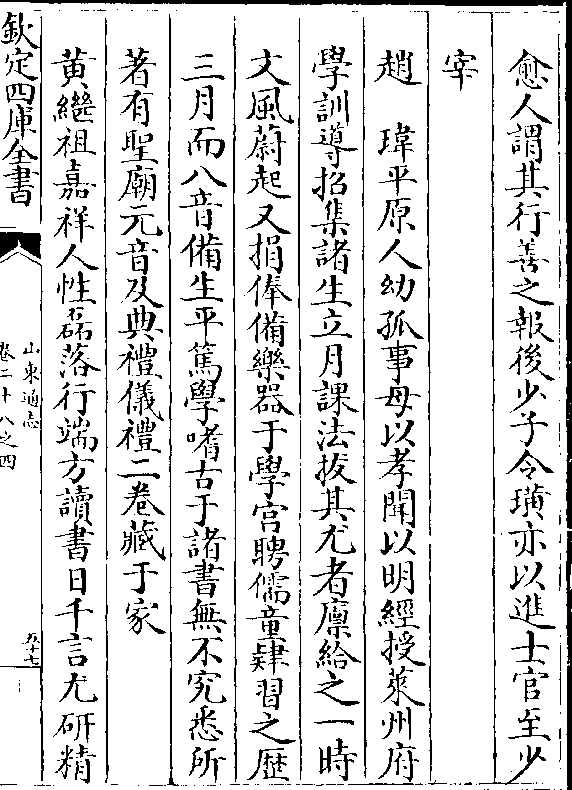 愈人謂其行善之報後少子令璜亦以進士官至少
宰
趙　瑋平原人幼孤事母以孝聞以明經授萊州府
學訓導招集諸生立月課法拔其尤者廪給之一時
文風蔚起又捐俸備樂器于學宫聘儒童肄習之歴
三月而八音備生平篤學嗜古于諸書無不究悉所
著有聖廟元音及典禮儀禮二卷藏于家
黄繼祖嘉祥人性磊落行端方讀書日千言尤研精
欽定四庫全書
山東通志
卷二十八之四
五十七